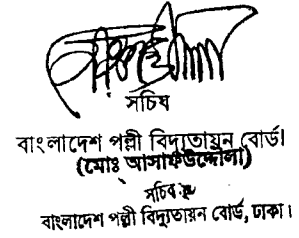 সচিব
বাংলাদেশ পল্লী বিদ্যুতায়ন বোর্ড।
(মোঃ আসাফউদ্দৌলা)
সচিব
বাংলাদেশ পল্লী বিদ্যুতায়ন বোর্ড, ঢাকা।